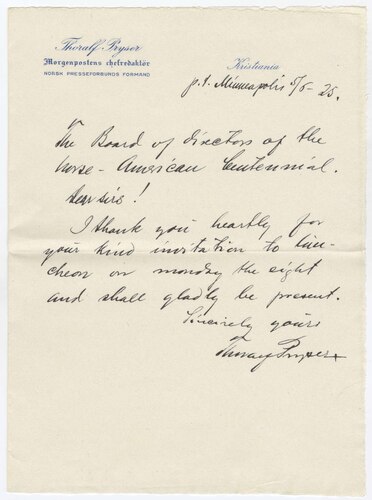 Thoralf Pryser
Morgenpostens chefredaktör
NORSK PRESSEFORBUNDS FORMAND
Kristiania
p.t. Minneapolis 5/6-25.
The Board of directors of the
Norse-American Centennial.
Dear sirs!
I thank you heartly for
your kind invitation to lun-
cheon on monday the eight
and shall gladly be present.
Sincirely yours
Thoralf Pryser